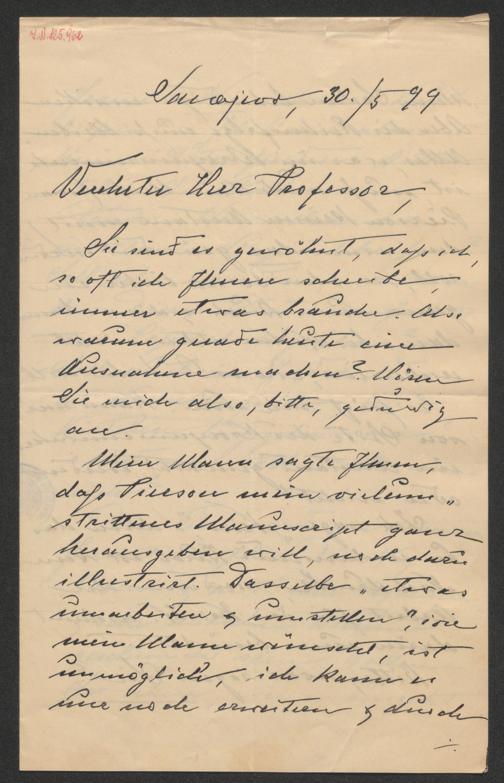 J.N. 165.962
Sarajevo, 30./5 99
Verehrter Herr Professor,
Sie sind es gewöhnt, daß ich,
so oft ich Ihnen schreibe,
immer etwas brauche. Also
warum gerade heute eine
Ausnahme machen? Hören
Sie mich also, bitte, geduldig
an.
Mein Mann sagte Ihnen,
daß Pierson mein vielum„
strittenes Manuscript ganz
herausgeben will, noch dazu
illustrirt. Dasselbe „etwas
umarbeiten & umstellen", wie
mein Mann wünscht, ist
unmöglich, ich kann es
nur noch erweitern & durch
./.